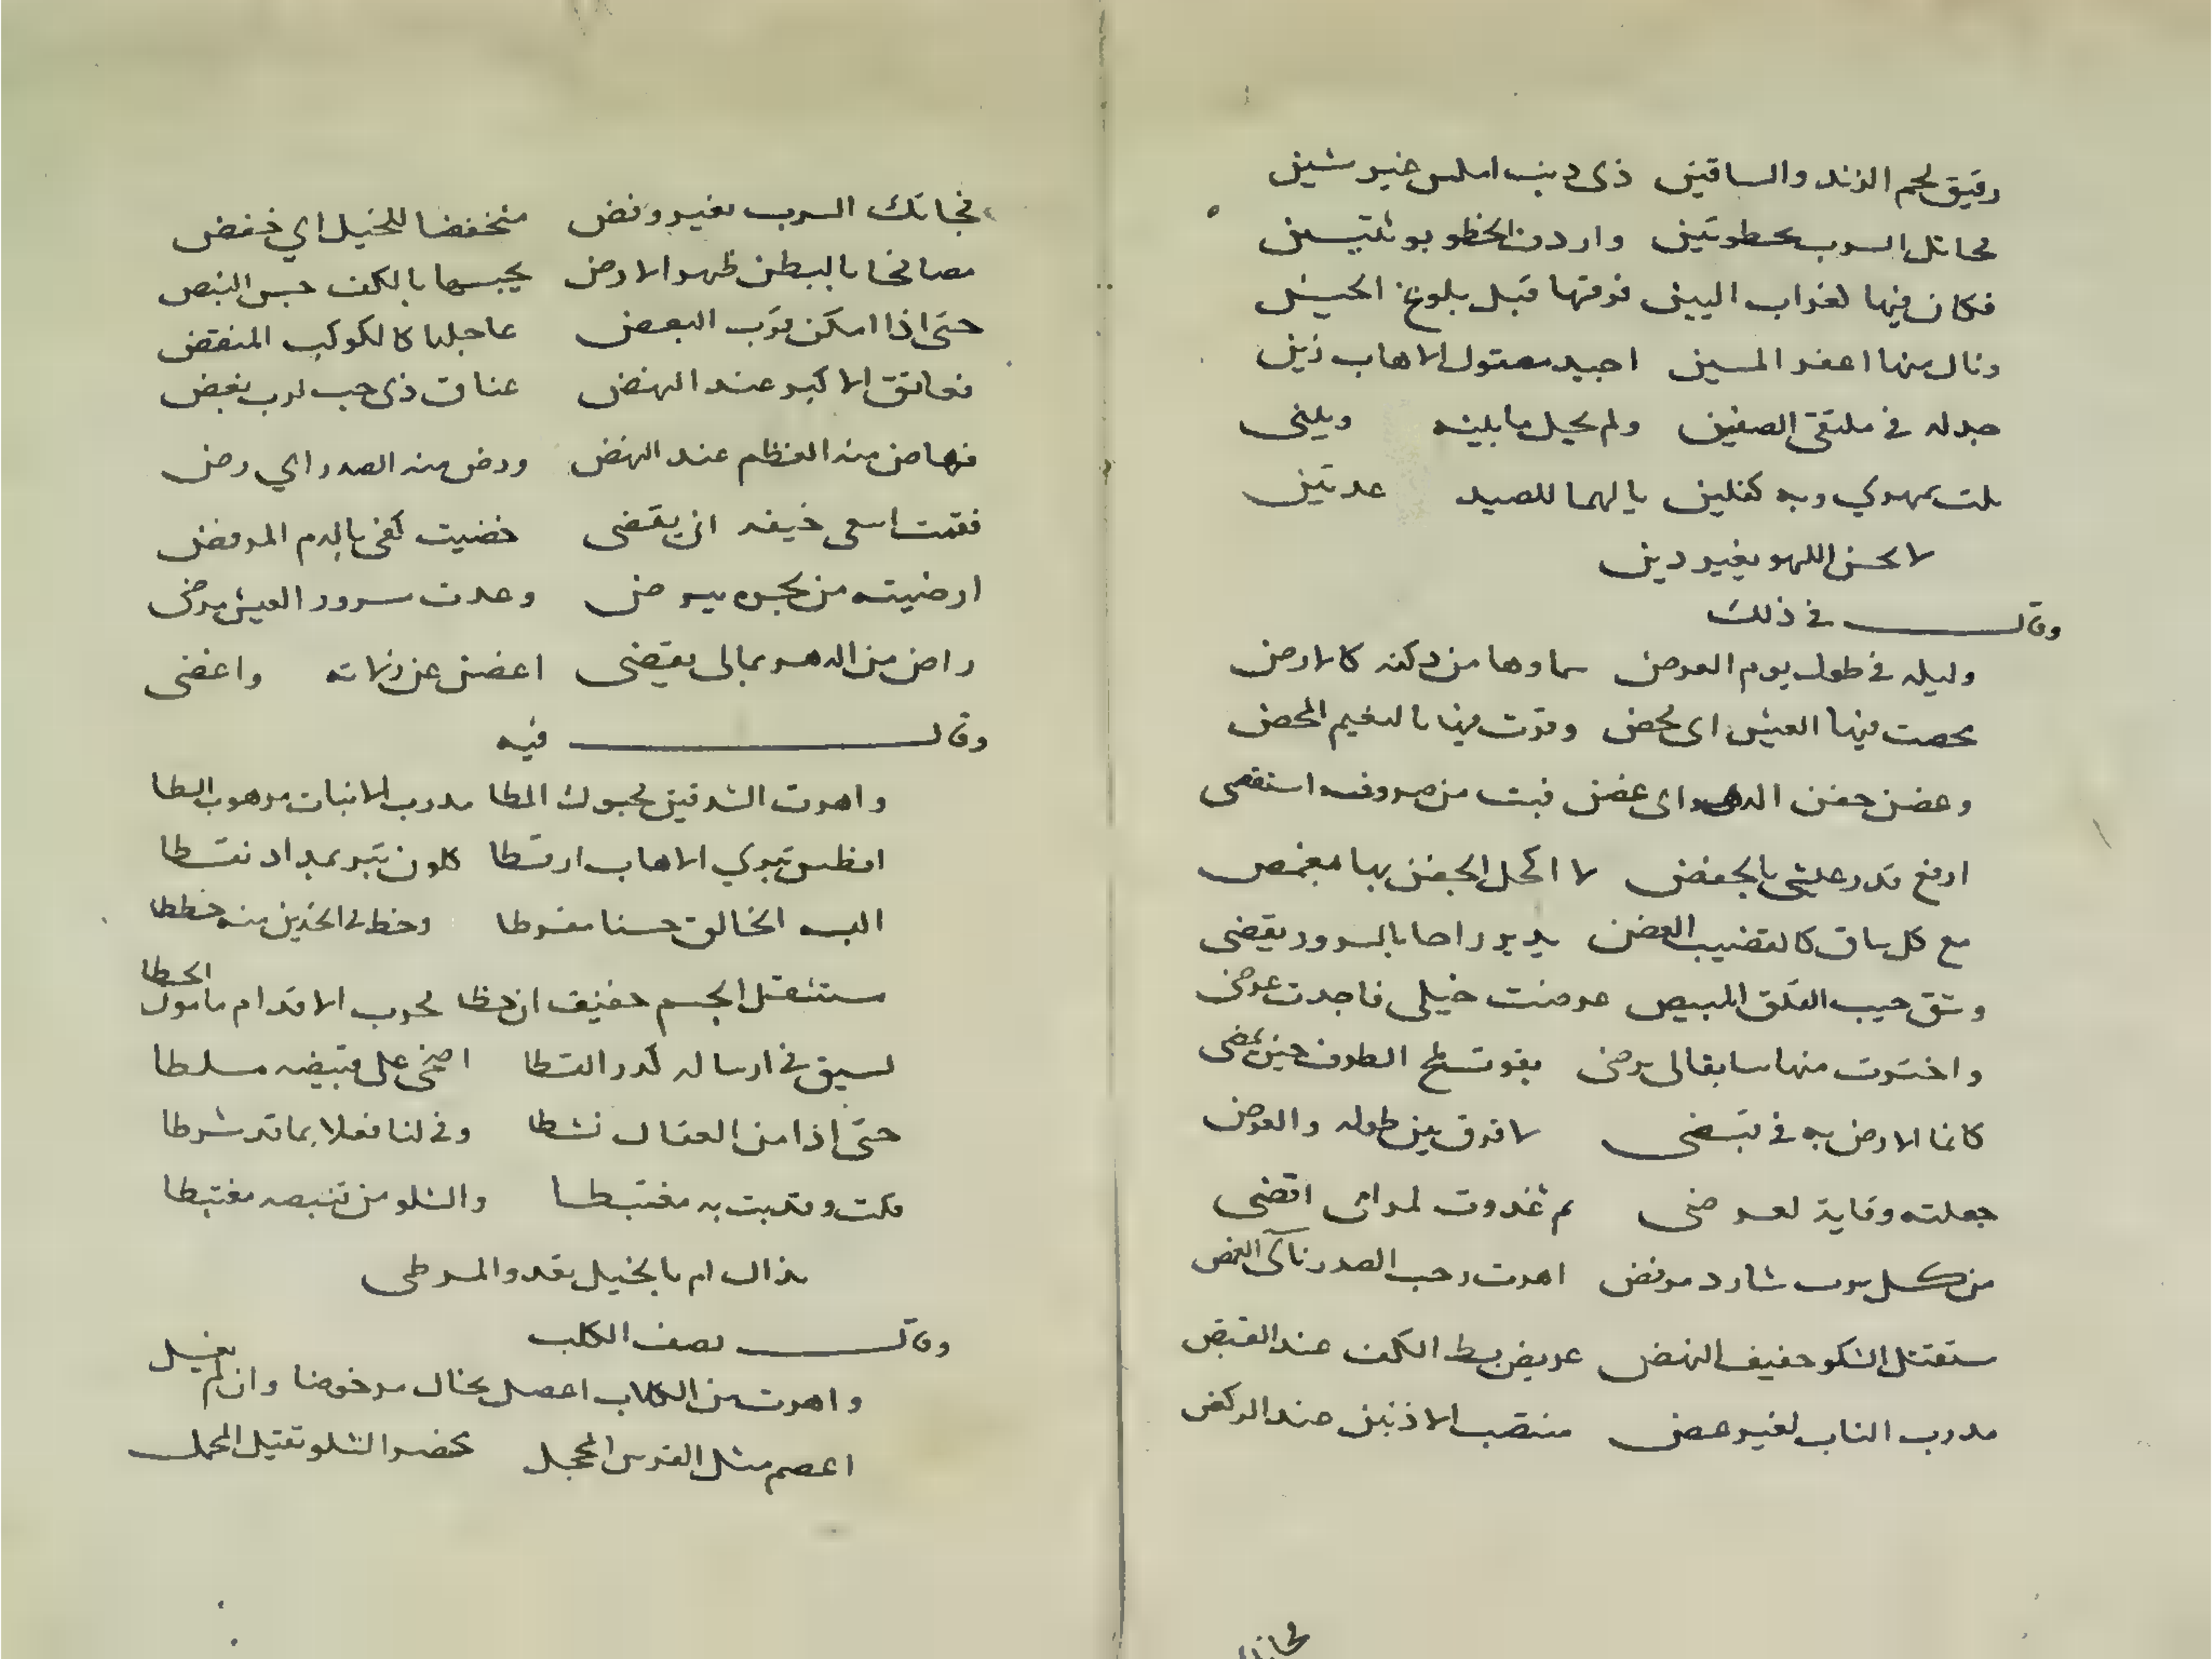 رقيق لحم الزند والساقين ذى ذنب املس غير شين
فكان فيها لغراب البين فرقتها قبل بلوغ الحين
ونال منها اعفر المسين اجيد مصقول الاهاب زين
جدله في ملتقى الصفين ولم يحل ما بينه وبيني
لا يحسن اللهو بغير دين
وقال في ذلك
وليله في طول يوم العرض سماوها من دكنه كالارض
وغض جفن الدهر اى غض فبت من صروفه استقصى
ارفع قدر عيشى بالخفض لا اكحل الجفن بها بغمض
مع كل ساق كالقضيب الغض يدير راحا بالسرور يقضى
وشق جيب الفلق المبيض عرضت خيلى فاجدت عرضى
واخترت منها سابقا لى يرضى يفوت لمح الطرف حين يمضى
كانما الارض به في قبضى لا فرق بين طوله والعرض
جعلته وقاية لعرضى ثم غدوت لمرامى اقضى
من كل سرب شارد مرفض اهرت رحب الصدر ناى الغمض
ستثقل الشكو خفيف النهض عريض بسط الكف عند القبض
مدرب الناب لغير عض منتصب الاذنين عند الركض
فخاتل السرب بغير وفض منخفضا للختل اي خفض
مصافحا بالبطن ظهر الارض يجسها بالكف جس النبض
حتى اذا امكن قرب البعض عاجلها كالكوكب المنقض
فعانق الاكبر عند النهض عناق ذى حب لرب بغض
فهاض منه العظم عند النهض ورض منه الصدر اي رض
فقمت اسعى خيفه ان يقضى خضبت كفى بالدم المرفض
راض من الدهر بما لى يقضى اغض عن زلاته واغضى
وقال فيه
واهرت الشدقين محبوك المطا مدرب الانياب مرهوب السطا
افطس تبري الاهاب ارقطا كلون تبر بمداد نقطا
البسه الخالق حسنا مفرطا وخط في الخدين منه خططا
ستثقل الجسم خفيف ان خطا مجرب الاقدام مامول الخطا
يسبق في ارساله كدر القطا اضحى على قنيصه مسلطا
حتى اذا من العقال نشطا وفى لنا فعلا بما قد شرطا
فكت وقد بت به مغتبطا والشلو من قنيصه مغتبطا
بذاك ام بالخيل تعدو المرطى
وقال يصف الكلب
واهرت من الكلاب اعصل يخال مرخوضا وان لم يغسل
اعصم مثل الفرس المحجل مخصر الشلو ثقيل المحمل